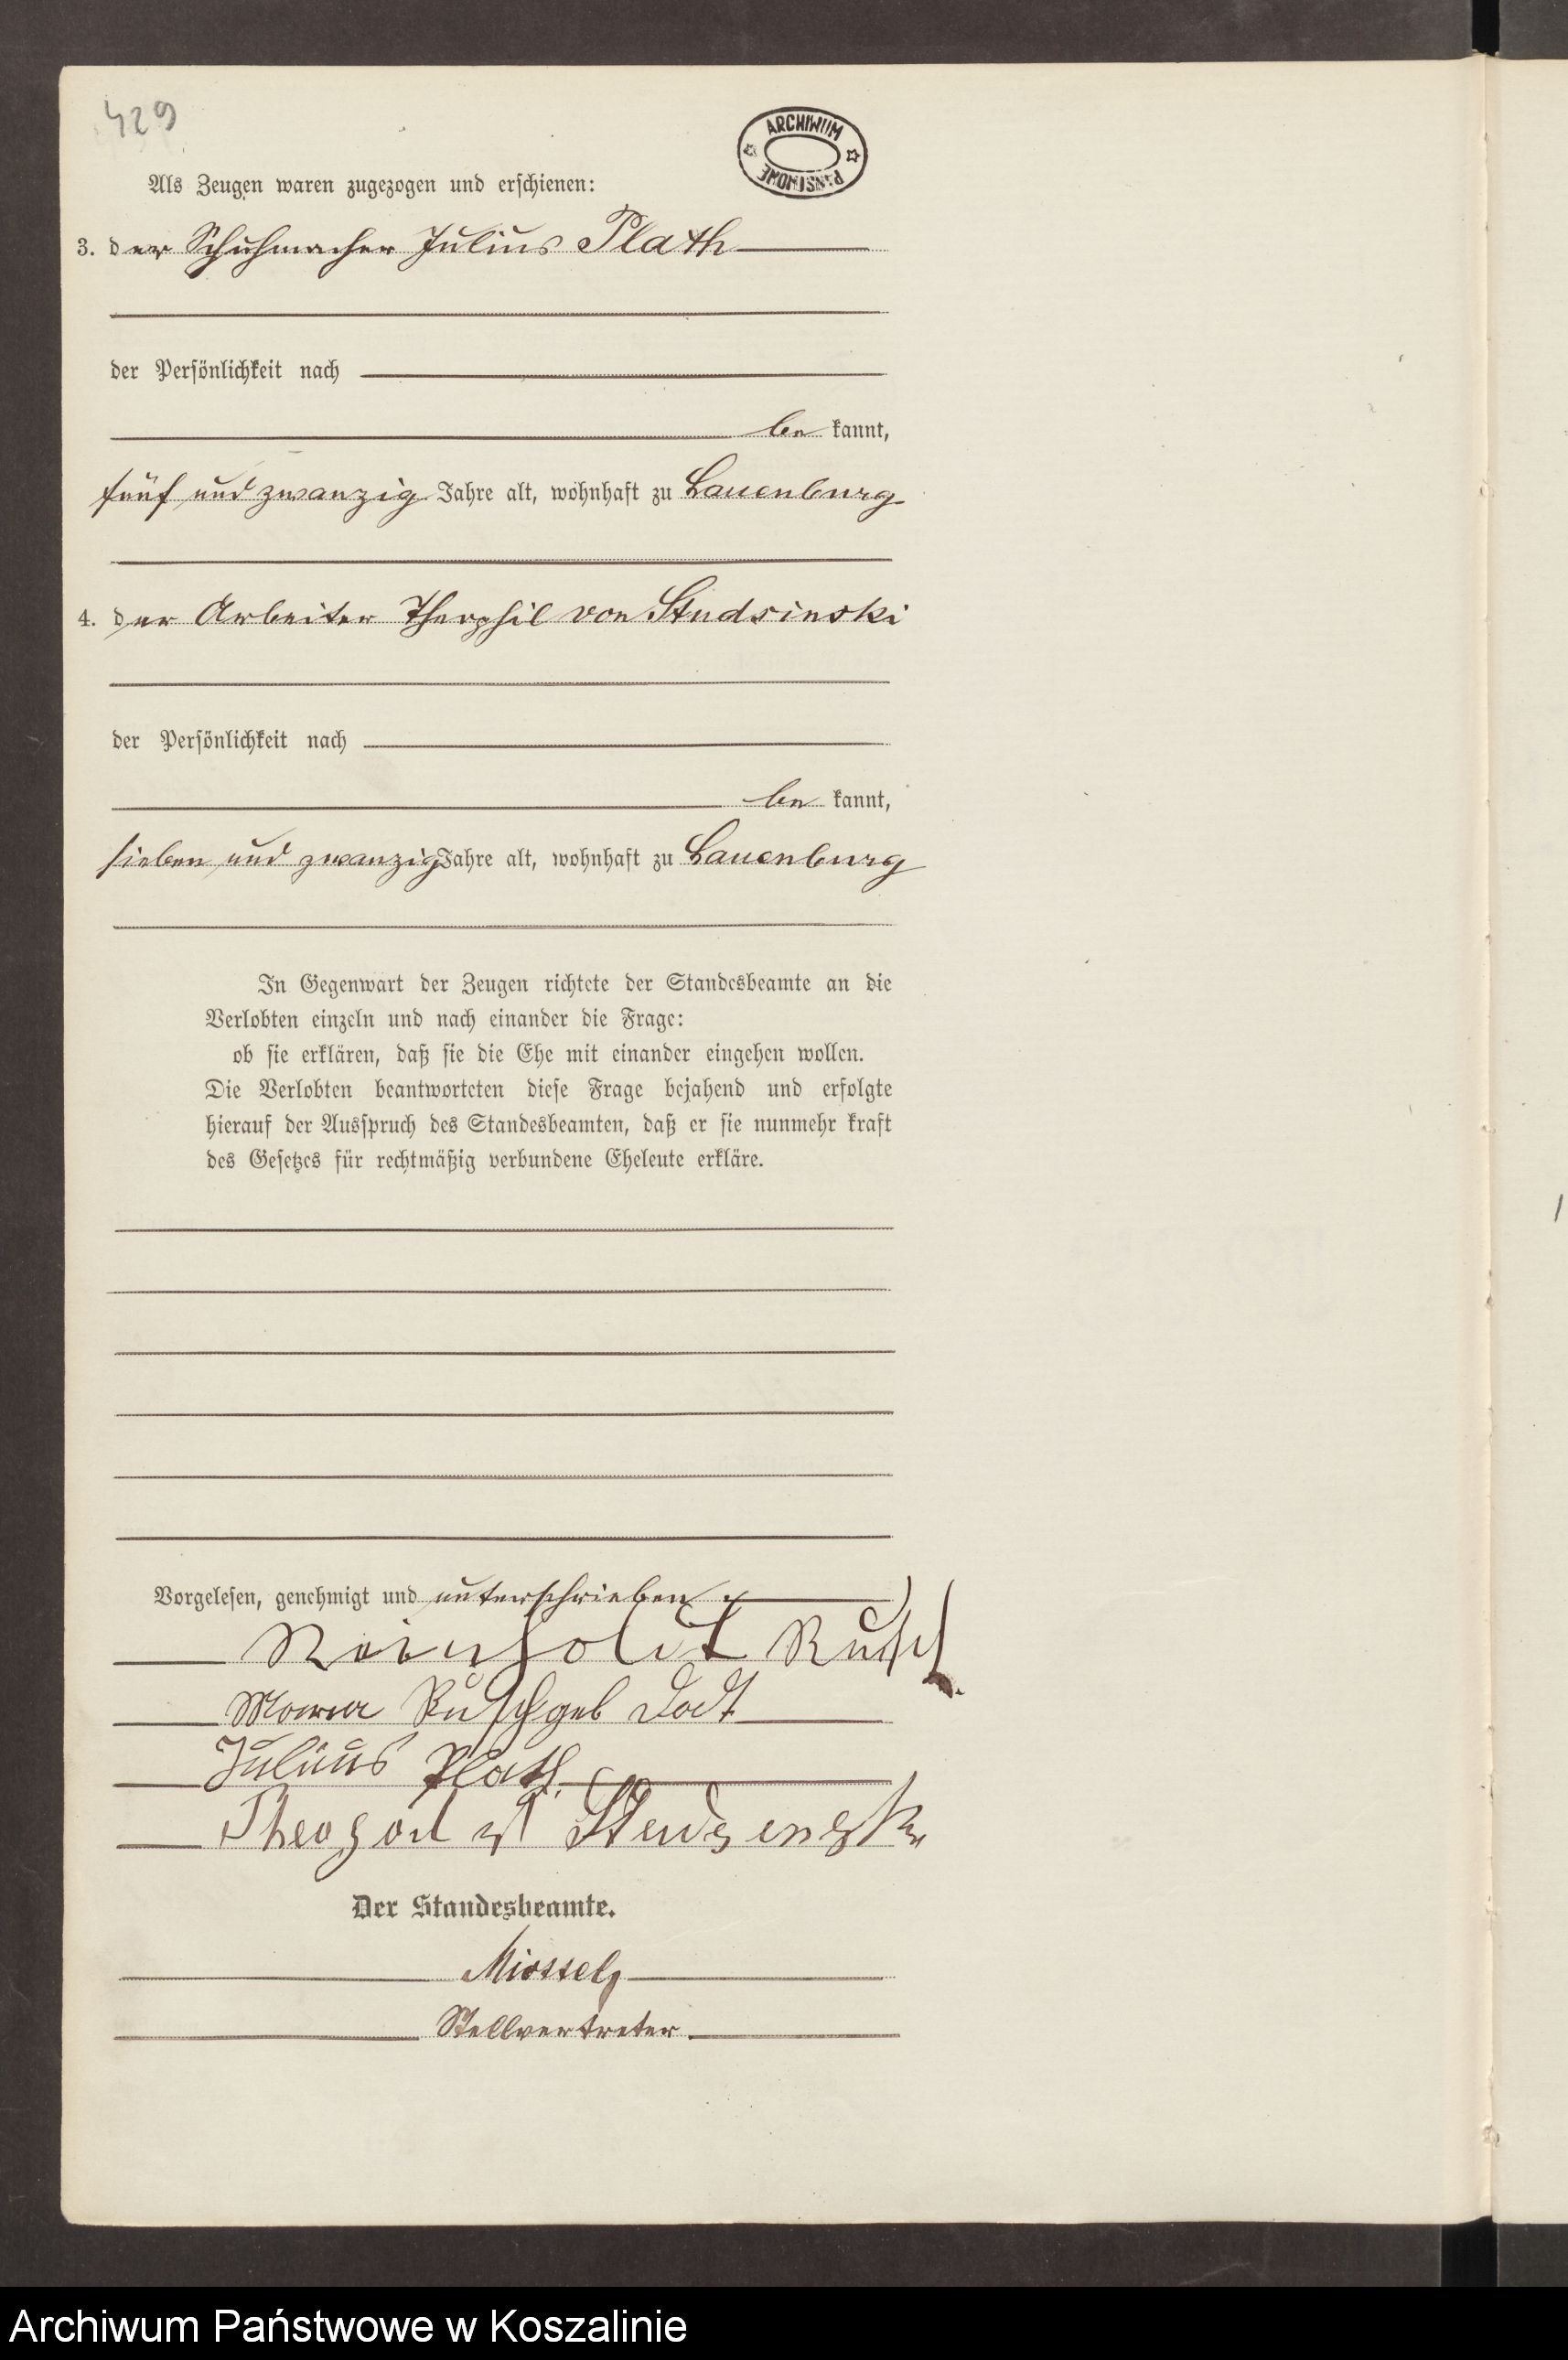 429
ARCHIWUM
PAŃSTWOWE
Als Zeugen waren zugezogen und erschienen:
3. der Schuhmacher Julius Plath
der Persönlichkeit nach
be kannt,
fünf und zwanzig Jahre alt, wohnhaft zu Lauenburg
4. der Arbeiter Theophil von Studsinski
der Persönlichkeit nach
be kannt,
sieben und zwanzig Jahre alt, wohnhaft zu Lauenburg
In Gegenwart der Zeugen richtete der Standesbeamte an die
Verlobten einzeln und nach einander die Frage:
ob sie erklären, daß sie die Ehe mit einander eingehen wollen.
Die Verlobten beantworteten diese Frage bejahend und erfolgte
hierauf der Ausspruch des Standesbeamten, daß er sie nunmehr kraft
des Gesetzes für rechtmäßig verbundene Eheleute erkläre.
Vorgelesen, genehmigt und unterschrieben
Reinholdt Rusch
Rusch geb
Julius Plath
Der Standesbeamte.
Stellvertreter.
Archiwum Państwowe w Koszalinie